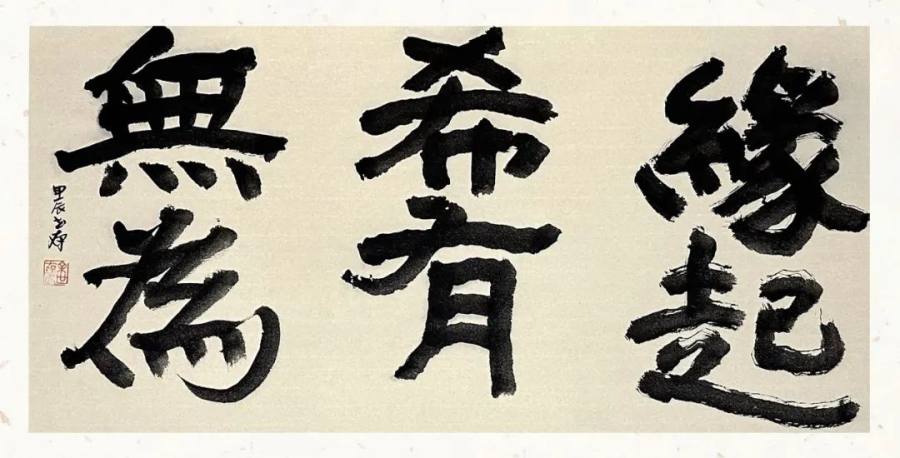 緣起
希有
無為
甲辰